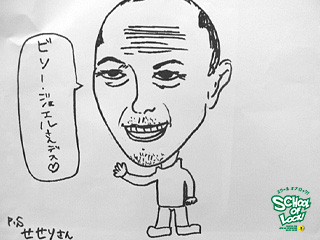 ビソー・ジョエルさんデス♡
P.S せせりさん
スクール オブ ロック!
SCHOOL
OF
LOCK!